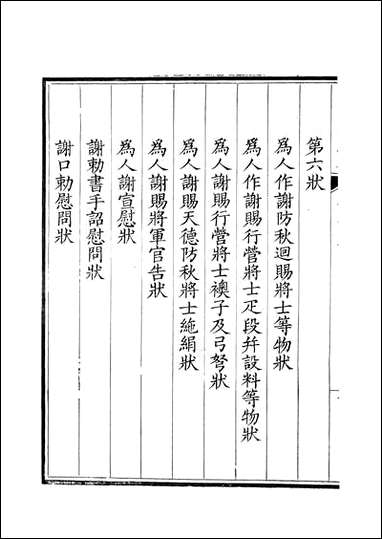 第六狀
爲人作謝防秋迴賜將士等物狀
爲人作謝賜行營將士疋段幷設料等物狀
爲人謝賜行營將士襖子及弓弩狀
爲人謝賜天德防秋將士絁絹狀
爲人謝賜將軍官告狀
爲人謝宣慰狀
謝勅書手詔慰問狀
謝口勅慰問狀